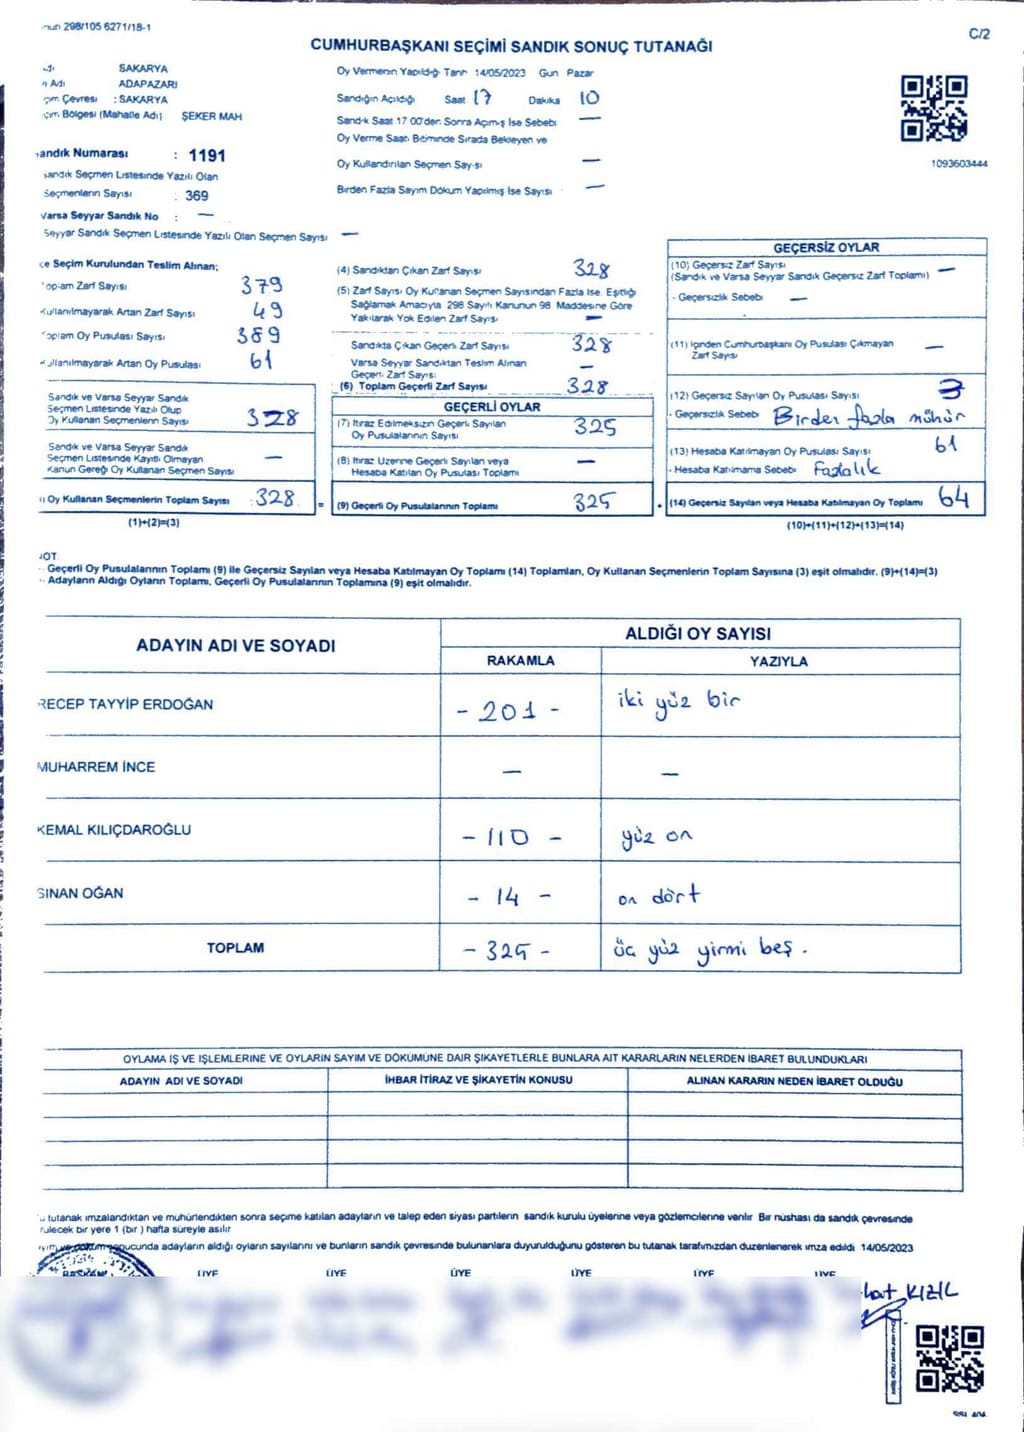 298/105 6271/18-1
C/2
CUMHURBAŞKANI SEÇİMİ SANDIK SONUÇ TUTANAĞI
SAKARYA
Adı ADAPAZARI
Çevresi : SAKARYA
Bölgesi (Mahalle Adı) ŞEKER MAH
Sandık Numarası : 1191
Sandık Seçmen Listesinde Yazılı Olan
Seçmenlerin Sayısı : 369
Varsa Seyyar Sandık No : —
Seyyar Sandık Seçmen Listesinde Yazılı Olan Seçmen Sayısı —
Oy Vermenin Yapıldığı Tarih 14/05/2023 Gün Pazar
Sandığın Açıldığı Saat 17 Dakika 10
Sandık Saat 17 00'den Sonra Açılmış İse Sebebi —
Oy Verme Saati Bitiminde Sırada Bekleyen ve
Oy Kullandırılan Seçmen Sayısı —
Birden Fazla Sayım Döküm Yapılmış İse Sayısı —
1093603444
Seçim Kurulundan Teslim Alınan;
Toplam Zarf Sayısı 379
Kullanılmayarak Artan Zarf Sayısı 49
Toplam Oy Pusulası Sayısı 389
Kullanılmayarak Artan Oy Pusulası 61
Sandık ve Varsa Seyyar Sandık
Seçmen Listesinde Yazılı Olup
Oy Kullanan Seçmenlerin Sayısı 328
Sandık ve Varsa Seyyar Sandık
Seçmen Listesinde Kayıtlı Olmayan
Kanun Gereği Oy Kullanan Seçmen Sayısı —
Oy Kullanan Seçmenlerin Toplam Sayısı 328 =
(1)+(2)=(3)
(4) Sandıktan Çıkan Zarf Sayısı 328
(5) Zarf Sayısı Oy Kullanan Seçmen Sayısından Fazla İse, Eşitliği
Sağlamak Amacıyla 298 Sayılı Kanunun 98 Maddesine Göre
Yakılarak Yok Edilen Zarf Sayısı —
Sandıkta Çıkan Geçerli Zarf Sayısı 328
Varsa Seyyar Sandıktan Teslim Alınan
Geçerli Zarf Sayısı —
(6) Toplam Geçerli Zarf Sayısı 328
GEÇERLİ OYLAR
(7) İtiraz Edilmeksizin Geçerli Sayılan
Oy Pusulalarının Sayısı 325
(8) İtiraz Üzerine Geçerli Sayılan veya
Hesaba Katılan Oy Pusulası Toplamı —
(9) Geçerli Oy Pusulalarının Toplamı 325 +
GEÇERSİZ OYLAR
(10) Geçersiz Zarf Sayısı
(Sandık ve Varsa Seyyar Sandık Geçersiz Zarf Toplamı) —
- Geçersizlik Sebebi —
(11) İçinden Cumhurbaşkanı Oy Pusulası Çıkmayan
Zarf Sayısı —
(12) Geçersiz Sayılan Oy Pusulası Sayısı 3
- Geçersizlik Sebebi Birden fazla mühür
(13) Hesaba Katılmayan Oy Pusulası Sayısı 61
- Hesaba Katılmama Sebebi Fazlalık
(14) Geçersiz Sayılan veya Hesaba Katılmayan Oy Toplamı 64
(10)+(11)+(12)+(13)=(14)
NOT:
- Geçerli Oy Pusulalarının Toplamı (9) ile Geçersiz Sayılan veya Hesaba Katılmayan Oy Toplamı (14) Toplamları, Oy Kullanan Seçmenlerin Toplam Sayısına (3) eşit olmalıdır. (9)+(14)=(3)
- Adayların Aldığı Oyların Toplamı, Geçerli Oy Pusulalarının Toplamına (9) eşit olmalıdır.
ADAYIN ADI VE SOYADI
ALDIĞI OY SAYISI
RAKAMLA YAZIYLA
RECEP TAYYİP ERDOĞAN - 201 - iki yüz bir
MUHARREM İNCE — —
KEMAL KILIÇDAROĞLU - 110 - yüz on
SİNAN OĞAN - 14 - on dört
TOPLAM - 325 - üç yüz yirmi beş.
OYLAMA İŞ VE İŞLEMLERİNE VE OYLARIN SAYIM VE DÖKÜMÜNE DAİR ŞİKAYETLERLE BUNLARA AİT KARARLARIN NELERDEN İBARET BULUNDUKLARI
ADAYIN ADI VE SOYADI İHBAR İTİRAZ VE ŞİKAYETİN KONUSU ALINAN KARARIN NEDEN İBARET OLDUĞU
tutanak imzalandıktan ve mühürlendikten sonra seçime katılan adayların ve talep eden siyasi partilerin sandık kurulu üyelerine veya gözlemcilerine verilir Bir nüshası da sandık çevresinde
bir yere 1 (bir) hafta süreyle asılır
sonucunda adayların aldığı oyların sayılarını ve bunların sandık çevresinde bulunanlara duyurulduğunu gösteren bu tutanak tarafımızdan düzenlenerek imza edildi 14/05/2023
BAŞKAN ÜYE ÜYE ÜYE ÜYE ÜYE ÜYE
KIZIL